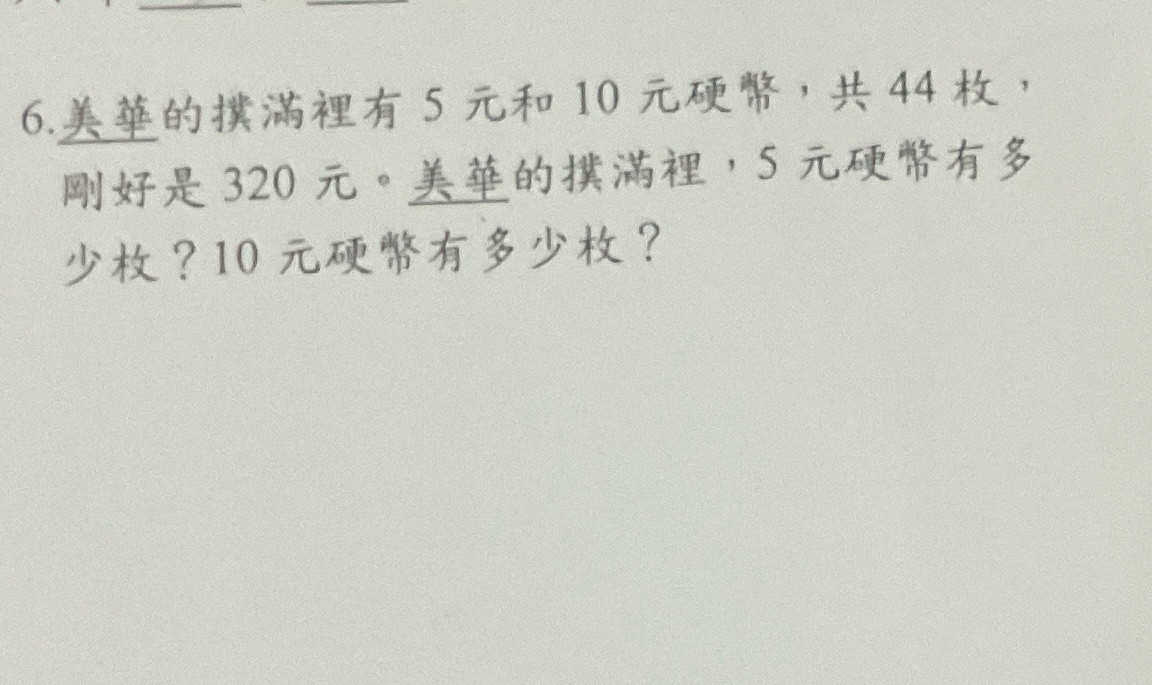 6.美華的撲滿裡有 5 元和 10 元硬幣，共 44 枚，
剛好是 320 元。美華的撲滿裡，5 元硬幣有多
少枚？10 元硬幣有多少枚？